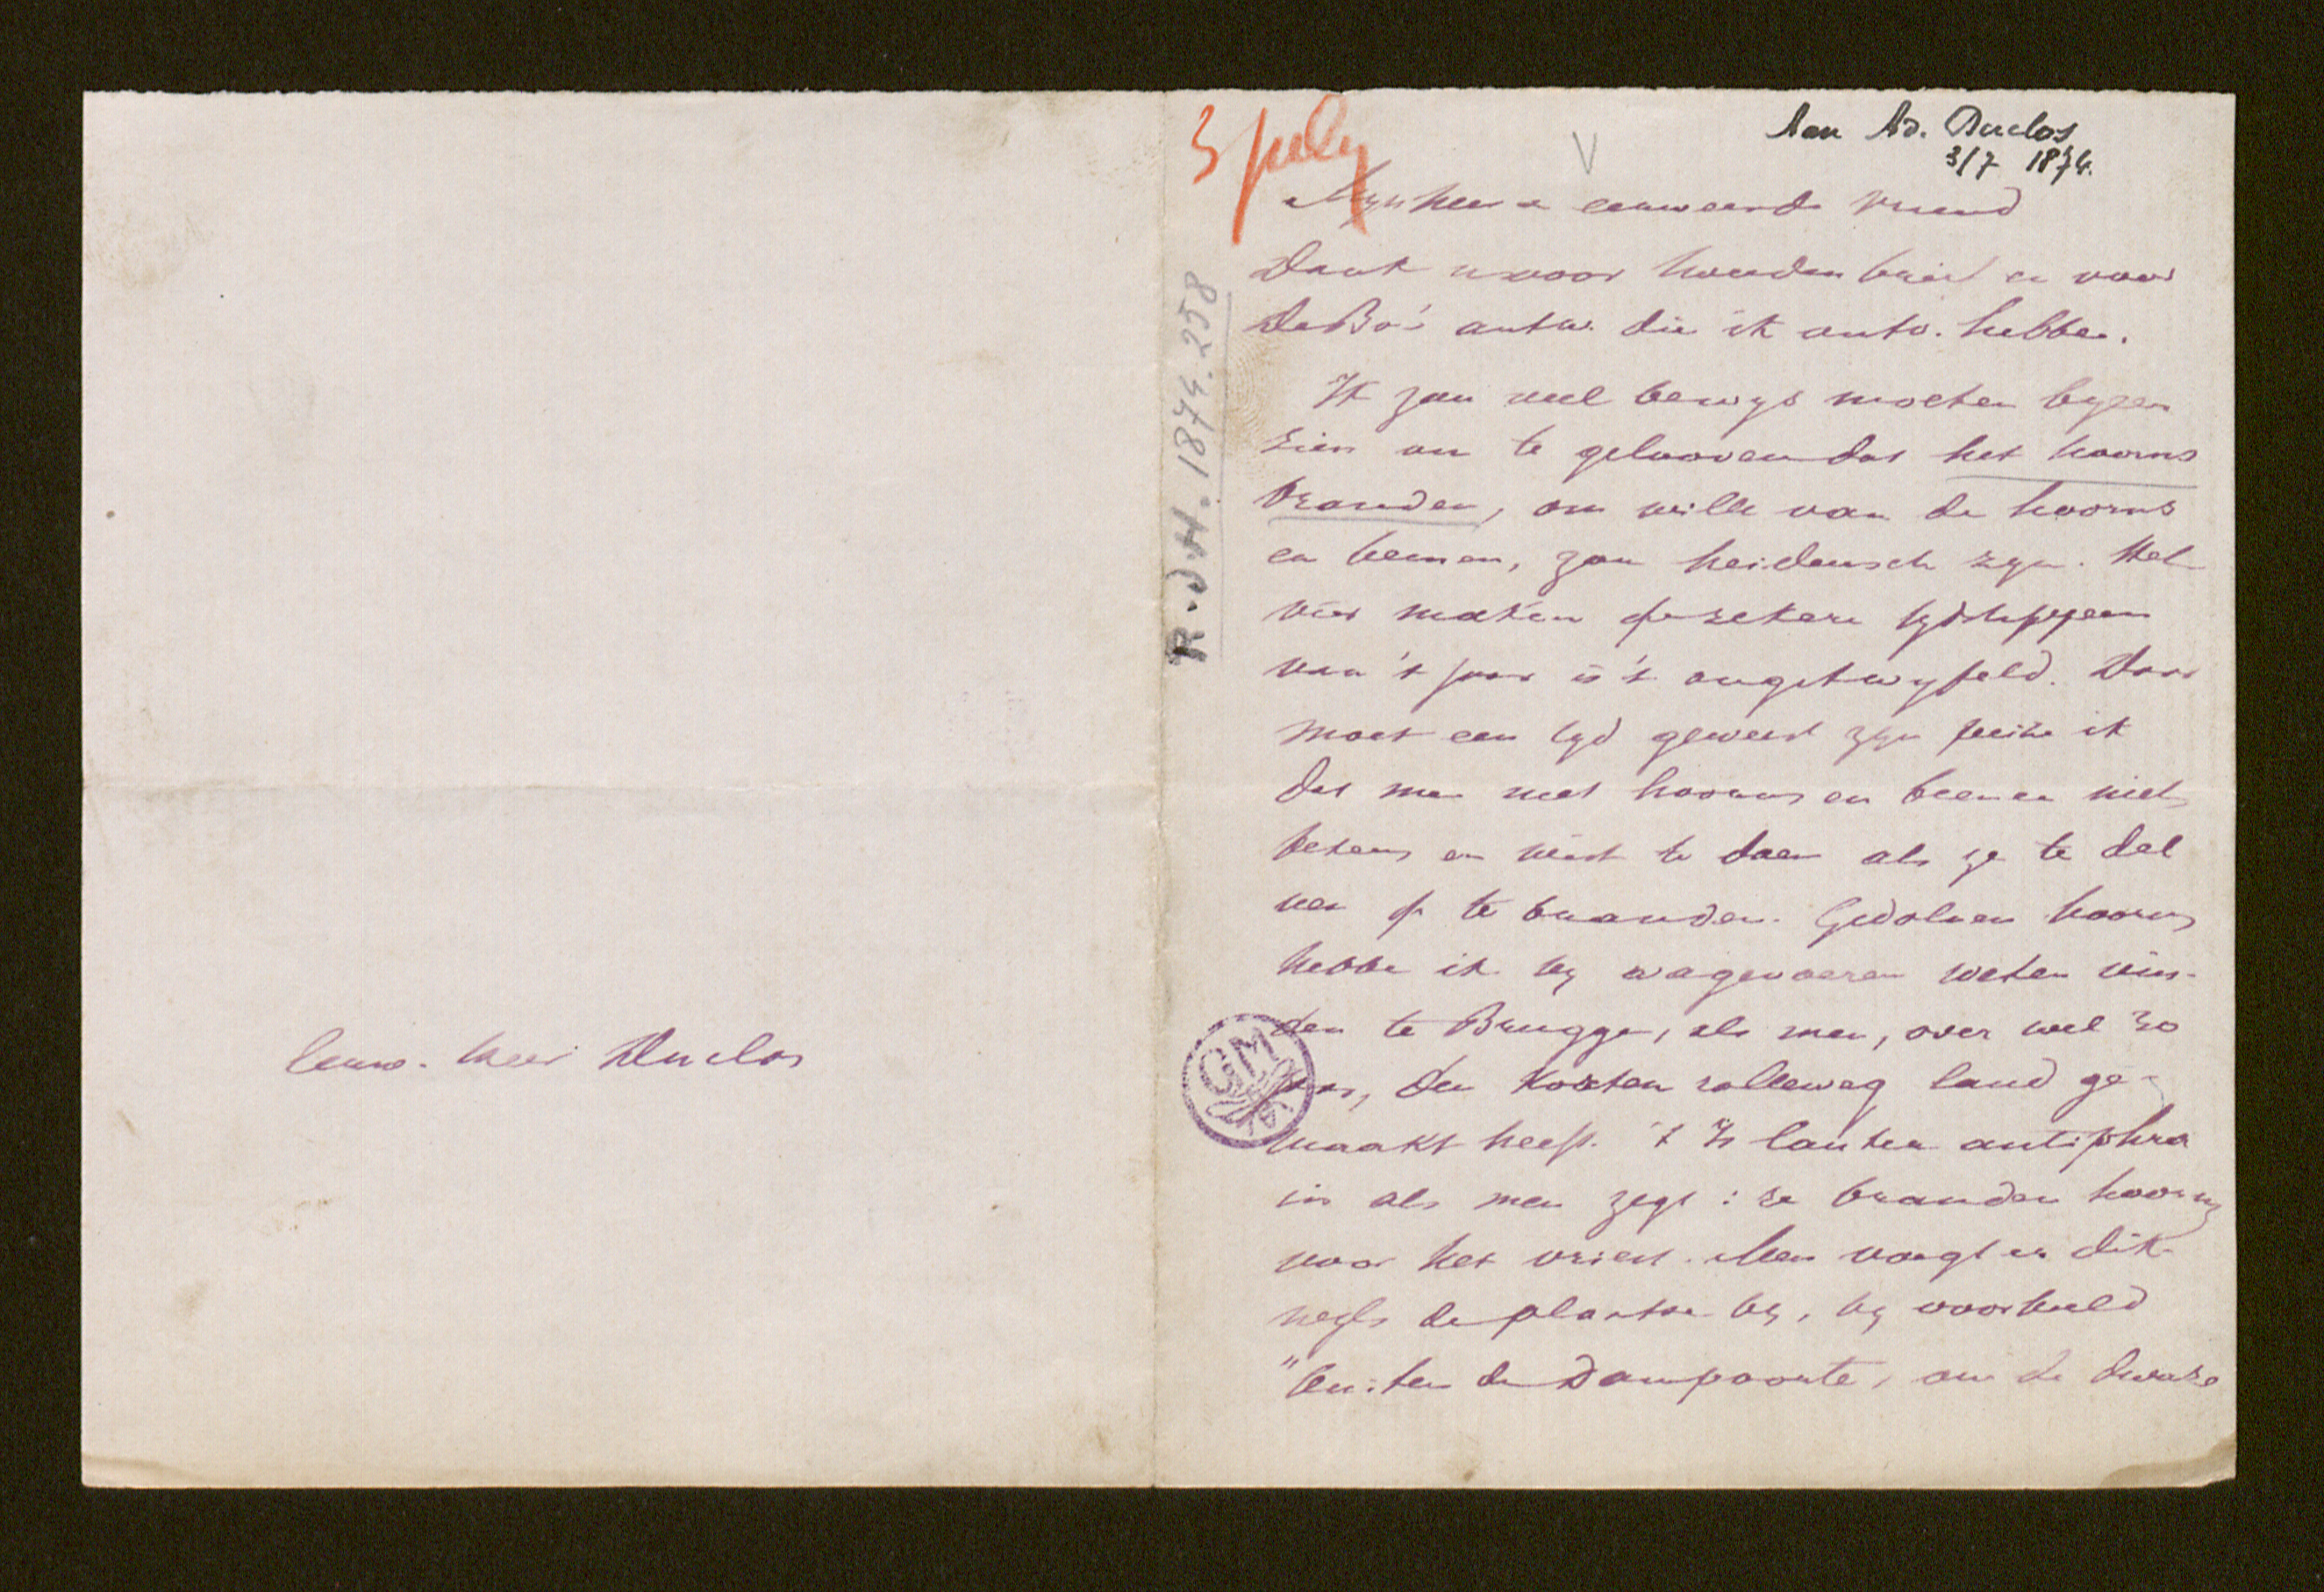 Eerw. heer Duclos
3 july
V
Aan Ad. Duclos
3/7 1874.
R.d.H. 1874. 258
Mynheer en eerweerde vriend
Dank u voor houden brief en voor
DeBo's antw. die ik antw. hebbe.
Ik zou veel bewys moeten byeen
zien om te gelooven dat het hoorns
branden, om wille van de hoorns
en beenen, zou heidensch zyn. Het
vier maken op zekere tydstippen
van 't jaar is 't ongetwyfeld. Daar
moet een tyd geweest zyn peize ik
dat men met hoorns en beenen niets
beters en wist te doen als ze te del
ven of te branden. Gedolven hoorns
hebbe ik by wagevoeren weten vin-
den te Brugge, als men, over veel 30
jaar, den Korten rolleweg land ge-
maakt heeft. 't Is louter antiphra
sis als men zegt: ze branden hoorns
voor het vriest. Men voegt er dik-
wegls de plaatse by, by voorbeeld
"buiten de Dampoorte, om de dwaze
GM